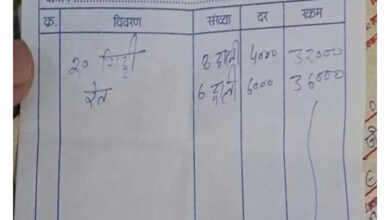 क्र. विवरण संख्या दर रकम
२० गिट्टी 8 ट्राली 4000 32000
रेत 6 ट्राली 6000 36000